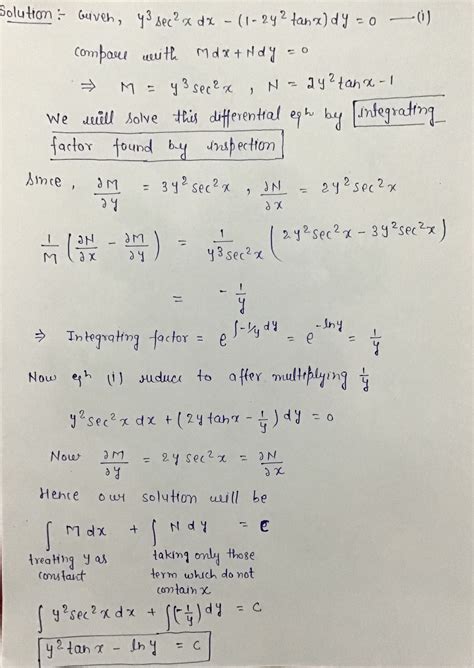 Solution:- Given, y³ sec²x dx - (1-2y² tanx) dy = 0 —(i)
compare with Mdx + Ndy = 0
⇒ M = y³ sec²x , N = 2y² tanx - 1
We will solve this differential eqn by integrating
factor found by inspection
Since, ∂M/∂y = 3y² sec²x , ∂N/∂x = 2y² sec²x
1/M (∂N/∂x - ∂M/∂y) = 1/(y³ sec²x) (2y² sec²x - 3y² sec²x)
= - 1/y
⇒ Integrating factor = e^(∫-1/y dy) = e^(-lny) = 1/y
Now eqn (i) reduce to after multiplying 1/y
y² sec²x dx + (2y tanx - 1/y) dy = 0
Now ∂M/∂y = 2y sec²x = ∂N/∂x
Hence our solution will be
∫ M dx + ∫ N dy = C
treating y as constant taking only those term which do not contain x
∫ y² sec²x dx + ∫(-1/y) dy = C
y² tanx - lny = C